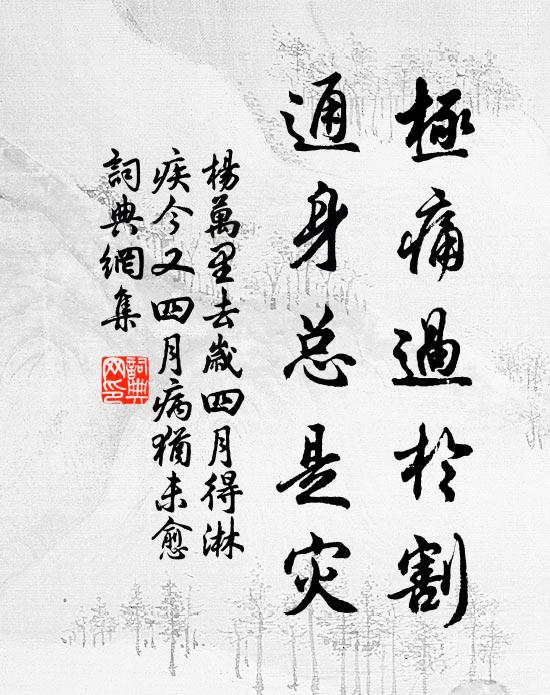 極痛過於割
通身总是灾
楊萬里去歲四月得淋
疾今又四月病猶未愈
詞典網集
詞典
网印